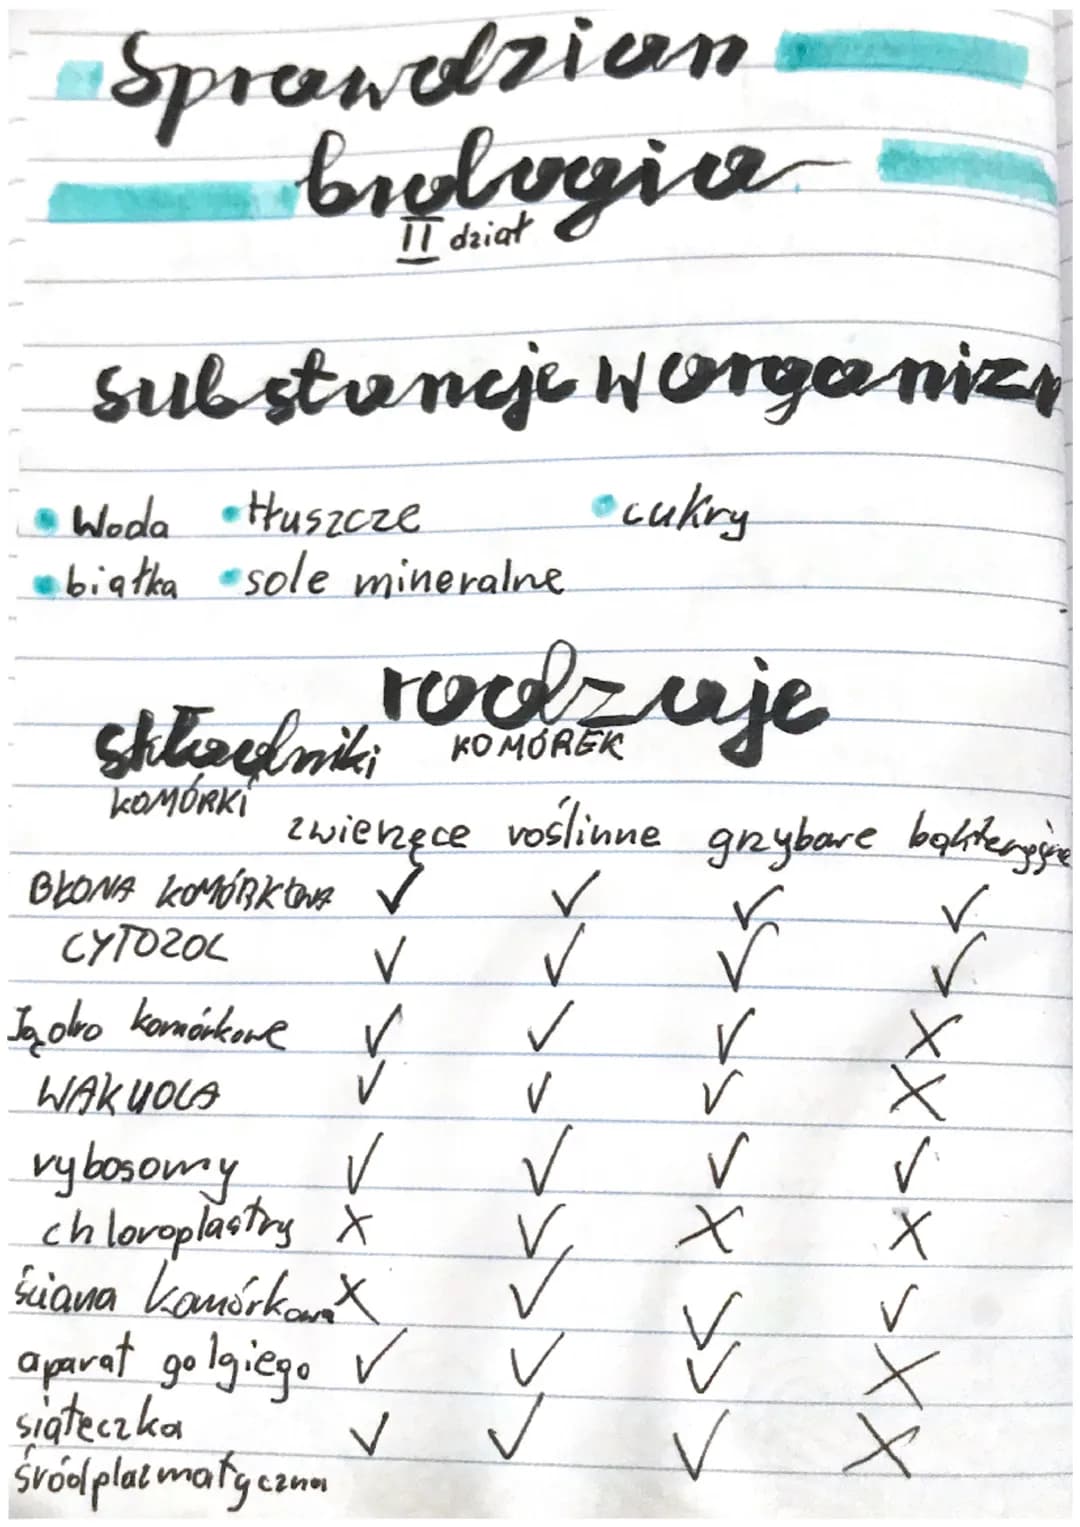 Sprawdzian
biologia
II dział
substancje w organizm
• Woda • tłuszcze • cukry
• białka • sole mineralne
rodzaje
składniki KOMÓREK
KOMÓRKI
zwierzęce roślinne grzybowe bakteryjne
BŁONA KOMÓRKOWA ✓ ✓ ✓ ✓
CYTOZOL ✓ ✓ ✓ ✓
Jądro komórkowe ✓ ✓ ✓ X
WAKUOLA ✓ ✓ ✓ X
rybosomy ✓ ✓ ✓ ✓
chloroplastry X ✓ X X
ściana komórkowa X ✓ ✓ ✓
aparat golgiego ✓ ✓ ✓ X
siąteczka ✓ ✓ ✓ X
śródplazmatyczna